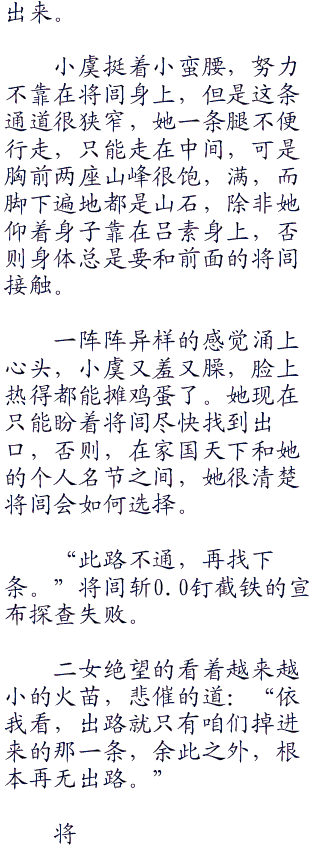 出来。
小虞挺着小蛮腰，努力
不靠在将闾身上，但是这条
通道很狭窄，她一条腿不便
行走，只能走在中间，可是
胸前两座山峰很饱，满，而
脚下遍地都是山石，除非她
仰着身子靠在吕素身上，否
则身体总是要和前面的将闾
接触。
一阵阵异样的感觉涌上
心头，小虞又羞又臊，脸上
热得都能摊鸡蛋了。她现在
只能盼着将闾尽快找到出
口，否则，在家国天下和她
的个人名节之间，她很清楚
将闾会如何选择。
“此路不通，再找下
条。”将闾斩0.0钉截铁的宣
布探查失败。
二女绝望的看着越来越
小的火苗，悲催的道：“依
我看，出路就只有咱们掉进
来的那一条，余此之外，根
本再无出路。”
将